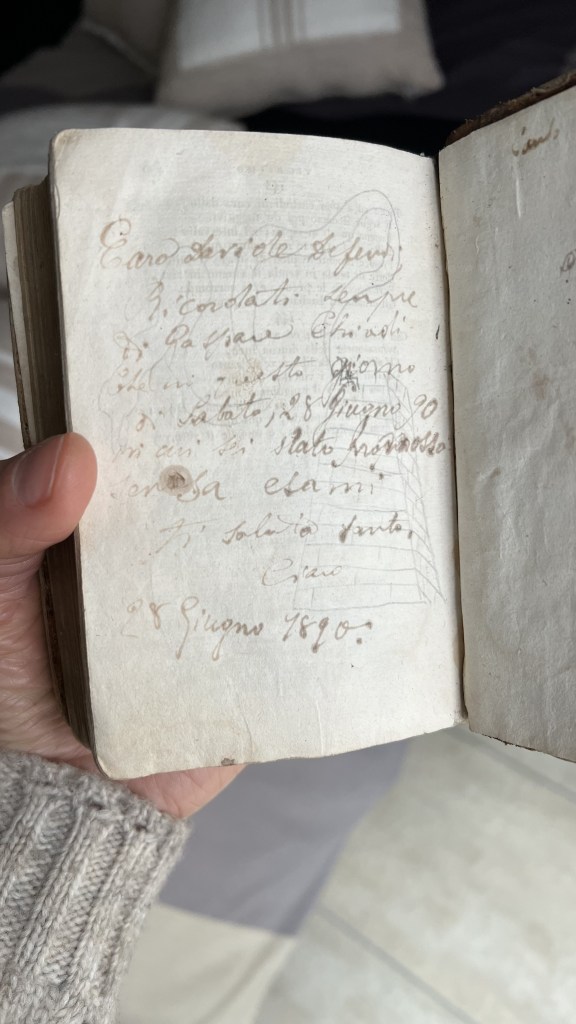 Caro Davide Defendi
Ricordati sempre
di Gaspare
che in questo giorno
di Sabato, 28 Giugno 90
in cui sei stato promosso
senza esami
Ti saluta tanto,
Ciao
28 Giugno 1890.